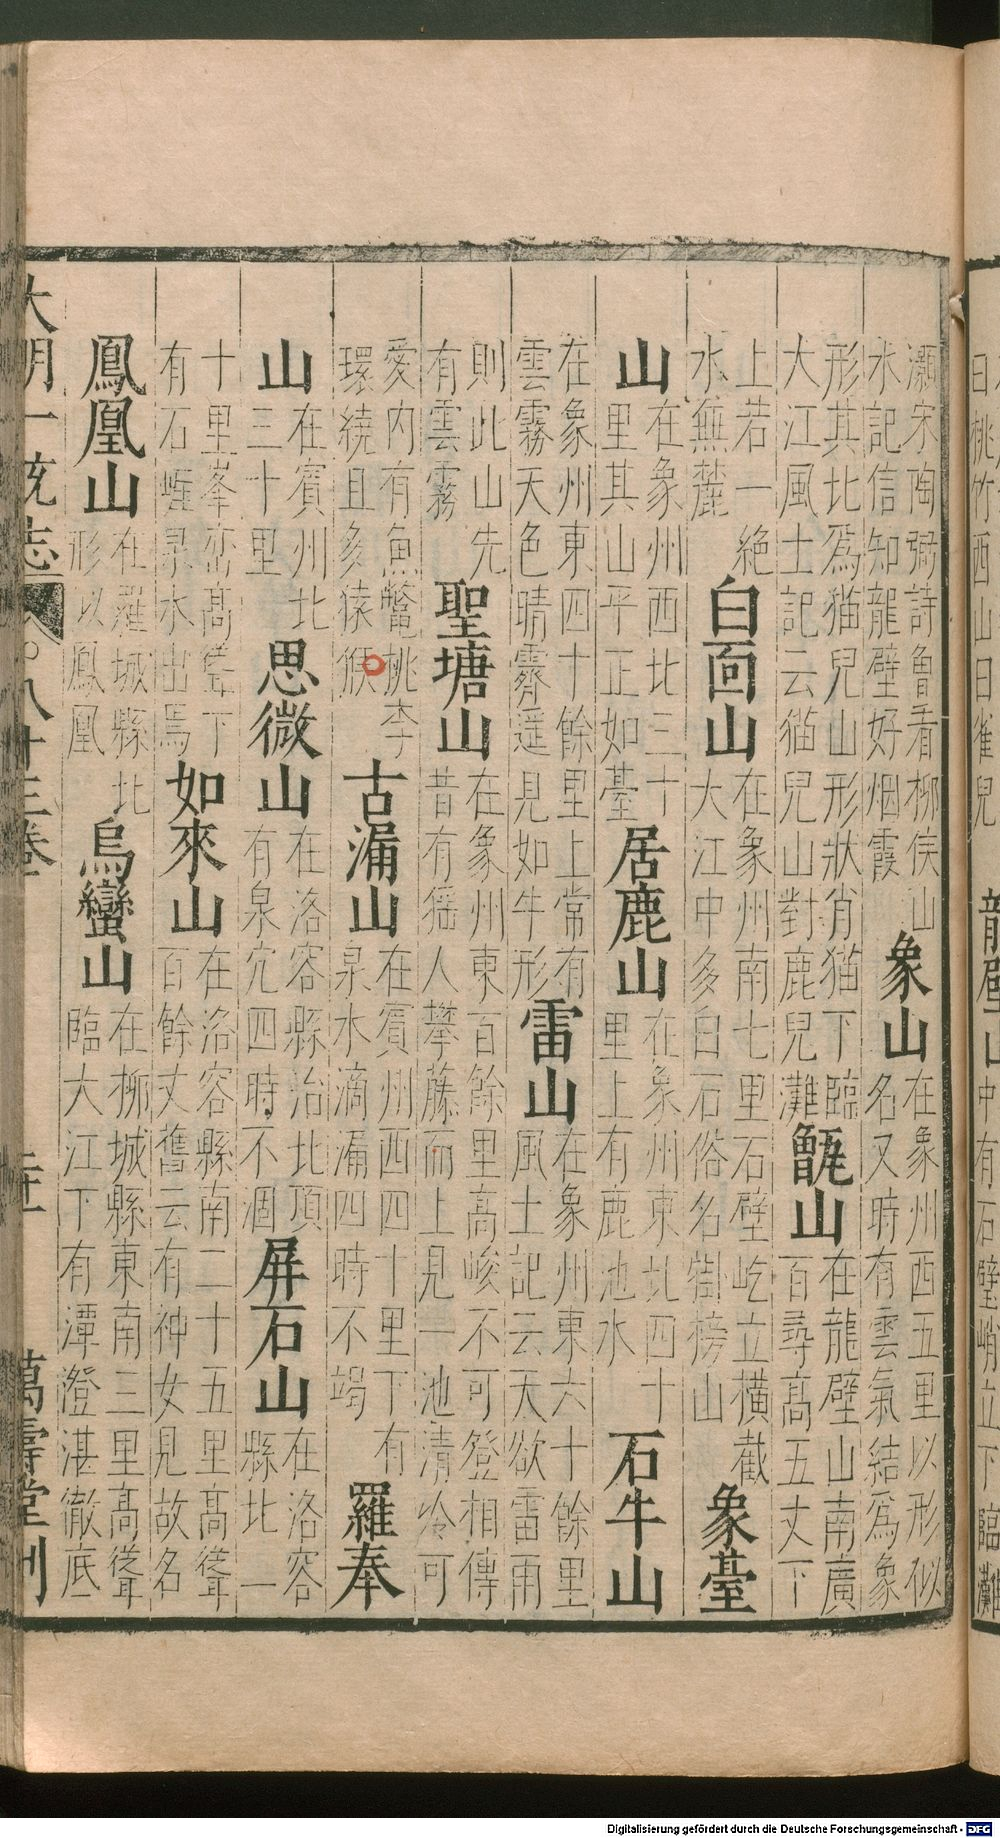 曰桃竹西山曰雀兒 龍壁山中有石壁峭立下臨灘
灝宋陶弼詩魯看柳侯山 象山在象州西五里以形似
水記信知龍壁好烟霞 名又時有雲氣結爲象
形其北爲猫兒山形狀肖猫下臨 甑山在龍壁山南廣
大江風土記云猫兒山對鹿兒灘 百尋高五丈下
上若一絶 白面山在象州南七里石壁屹立橫截
水無麓 大江中多白石俗名𥔲榜山 象臺
山在象州西北三十 居鹿山在象州東北四十 石牛山
里其山平正如臺 里上有鹿池水
在象州東四十餘里上常有 雷山在象州東六十餘里
雲霧天色晴霽遥見如牛形 風土記云天欲雷雨
則此山先 聖塘山在象州東百餘里高峻不可登相傳
有雲霧 昔有猺人攀藤而上見一池清冷可
愛内有魚鱉桃李 古漏山在賓州西四十里下有 羅奉
環繞且多猿猴 泉水滴漏四時不竭
山在賓州北 思微山在洛容縣治北頂 屏石山在洛容
三十里 有泉穴四時不涸 縣北一
十里峯巒高聳下 如來山在洛容縣南二十五里高聳
有石崖泉水出焉 百餘丈舊云有神女見故名
鳳凰山在羅城縣北 烏蠻山在柳城縣東南三里高聳
形以鳳凰 臨大江下有潭澄湛徹底
大明一統志 八十三卷 二十一 萬壽堂刊
Digitalisierung gefördert durch die Deutsche Forschungsgemeinschaft - DFG